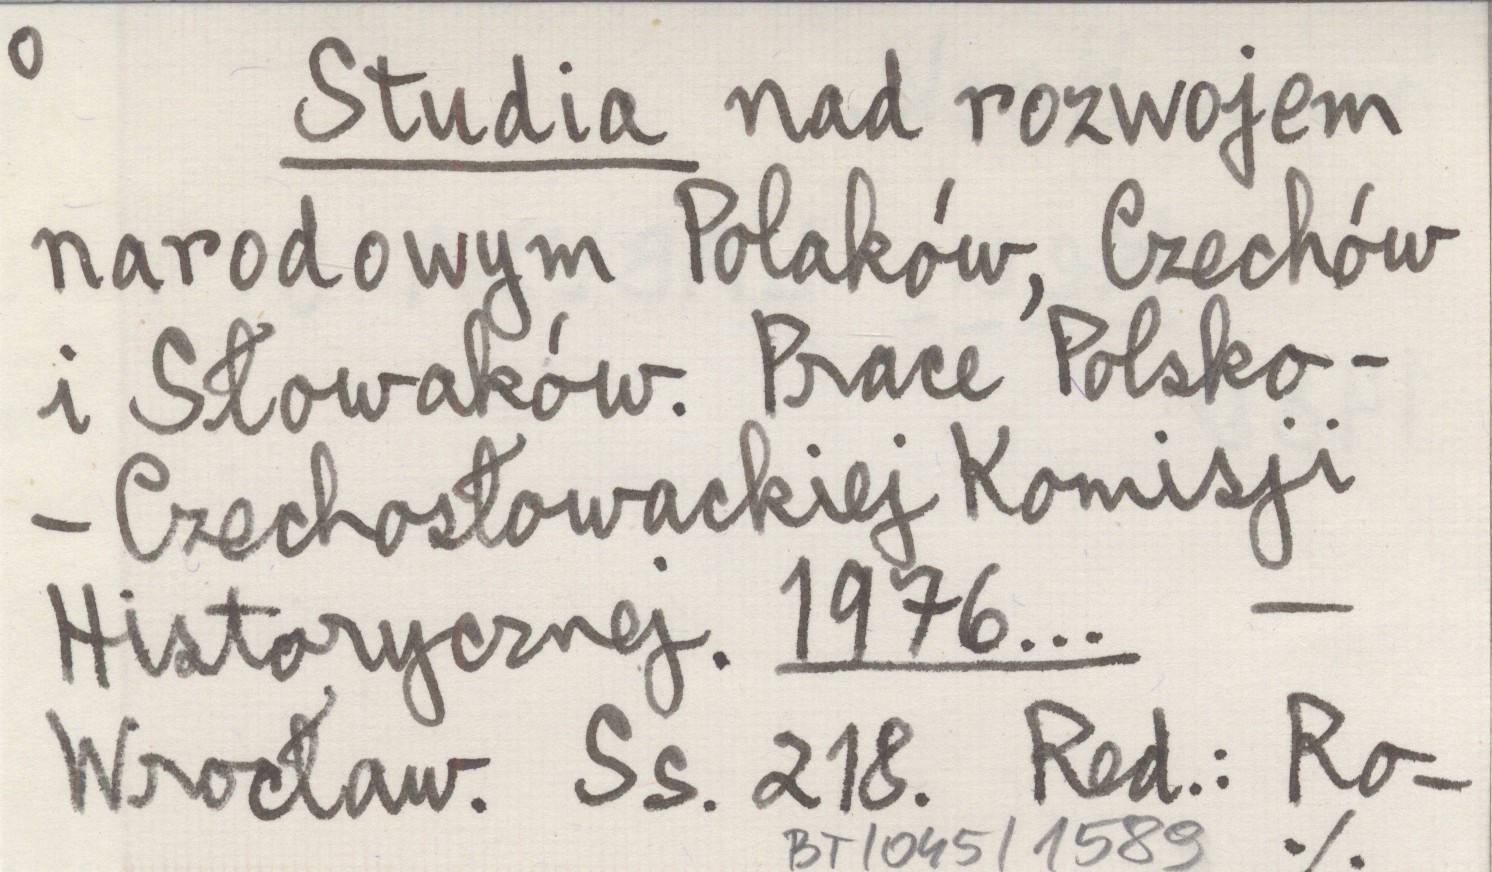 o
Studia nad rozwojem
narodowym Polaków, Czechów
i Słowaków. Prace Polsko-
-Czechosłowackiej Komisji
Historycznej. 1976... —
Wrocław. Ss. 218. Red.: Ro-
BT/045/1589 ./.